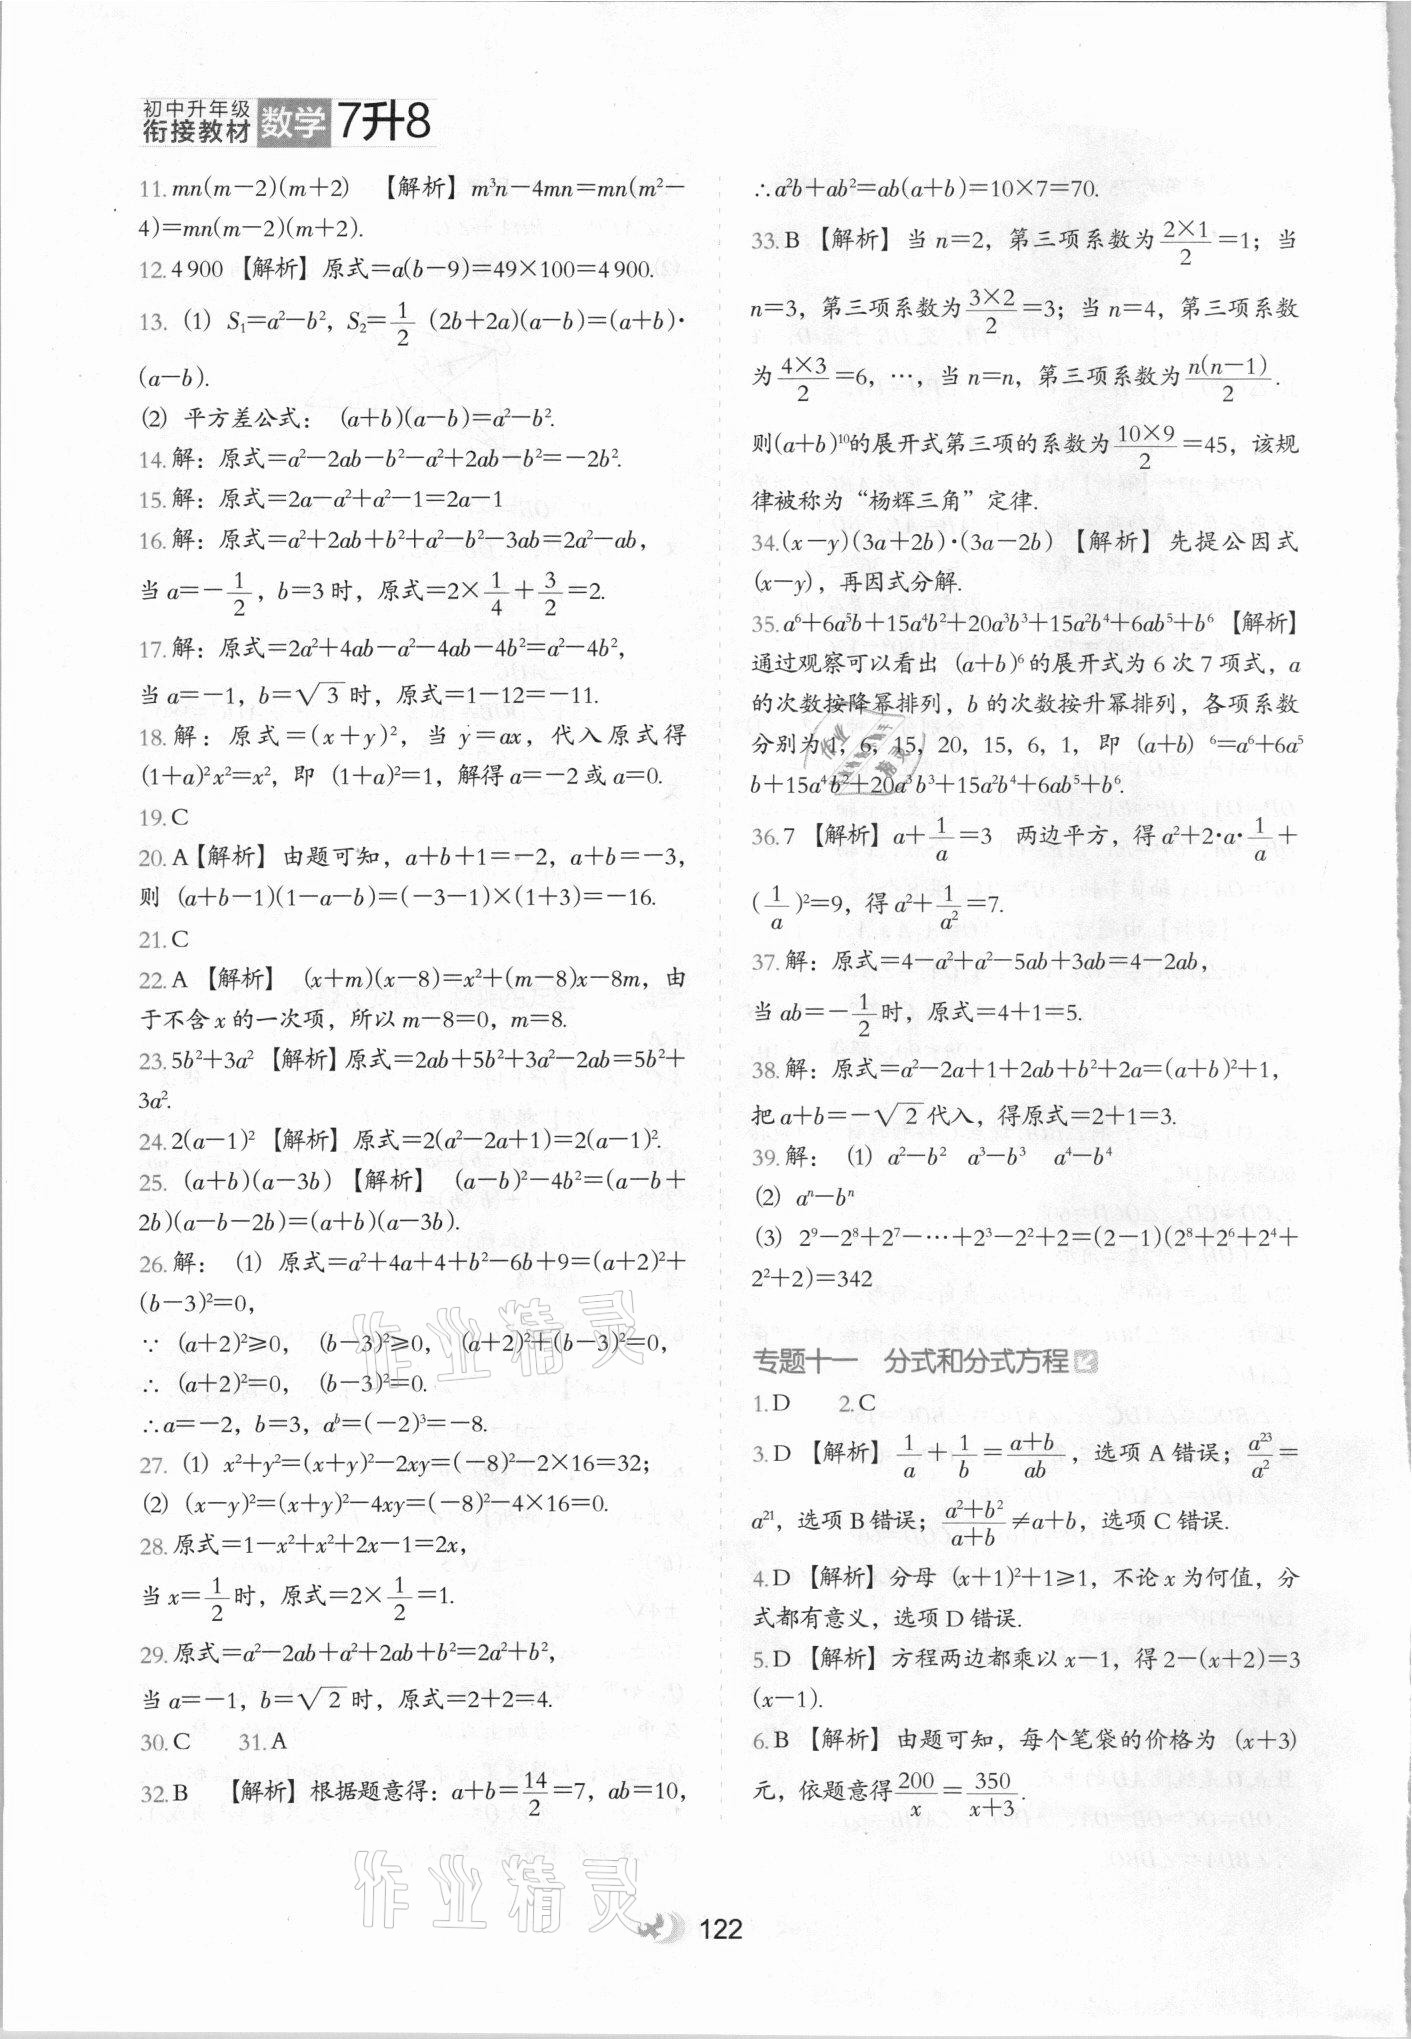 初中升年级
衔接教材 数学 7升8
11. mn(m－2)(m＋2) 【解析】m³n－4mn＝mn(m²－
4)＝mn(m－2)(m＋2).
12. 4 900 【解析】原式＝a(b－9)＝49×100＝4 900.
13. (1) S₁＝a²－b²，S₂＝1/2 (2b＋2a)(a－b)＝(a＋b)·
(a－b).
(2) 平方差公式： (a＋b)(a－b)＝a²－b².
14. 解：原式＝a²－2ab－b²－a²＋2ab－b²＝－2b².
15. 解：原式＝2a－a²＋a²－1＝2a－1
16. 解：原式＝a²＋2ab＋b²＋a²－b²－3ab＝2a²－ab，
当 a＝－1/2，b＝3 时，原式＝2×1/4＋3/2＝2.
17. 解：原式＝2a²＋4ab－a²－4ab－4b²＝a²－4b²，
当 a＝－1，b＝√3 时，原式＝1－12＝－11.
18. 解：原式＝(x＋y)²，当 y＝ax，代入原式得
(1＋a)²x²＝x²，即 (1＋a)²＝1，解得 a＝－2 或 a＝0.
19. C
20. A【解析】由题可知，a＋b＋1＝－2，a＋b＝－3，
则 (a＋b－1)(1－a－b)＝(－3－1)×(1＋3)＝－16.
21. C
22. A 【解析】 (x＋m)(x－8)＝x²＋(m－8)x－8m，由
于不含 x 的一次项，所以 m－8＝0，m＝8.
23. 5b²＋3a² 【解析】原式＝2ab＋5b²＋3a²－2ab＝5b²＋
3a².
24. 2(a－1)² 【解析】原式＝2(a²－2a＋1)＝2(a－1)².
25. (a＋b)(a－3b)【解析】 (a－b)²－4b²＝(a－b＋
2b)(a－b－2b)＝(a＋b)(a－3b).
26. 解： (1) 原式＝a²＋4a＋4＋b²－6b＋9＝(a＋2)²＋
(b－3)²＝0，
∵ (a＋2)²≥0， (b－3)²≥0， (a＋2)²＋(b－3)²＝0，
∴ (a＋2)²＝0， (b－3)²＝0.
∴a＝－2，b＝3，aᵇ＝(－2)³＝－8.
27. (1) x²＋y²＝(x＋y)²－2xy＝(－8)²－2×16＝32；
(2) (x－y)²＝(x＋y)²－4xy＝(－8)²－4×16＝0.
28. 原式＝1－x²＋x²＋2x－1＝2x，
当 x＝1/2 时，原式＝2×1/2＝1.
29. 原式＝a²－2ab＋a²＋2ab＋b²＝2a²＋b²，
当 a＝－1，b＝√2 时，原式＝2＋2＝4.
30. C 31. A
32. B 【解析】根据题意得：a＋b＝14/2＝7，ab＝10，
∴a²b＋ab²＝ab(a＋b)＝10×7＝70.
33. B 【解析】当 n＝2，第三项系数为 2×1/2＝1；当
n＝3，第三项系数为 3×2/2＝3；当 n＝4，第三项系数
为 4×3/2＝6，…，当 n＝n，第三项系数为 n(n－1)/2.
则(a＋b)¹⁰的展开式第三项的系数为 10×9/2＝45，该规
律被称为“杨辉三角”定律.
34. (x－y)(3a＋2b)·(3a－2b)【解析】先提公因式
(x－y)，再因式分解.
35. a⁶＋6a⁵b＋15a⁴b²＋20a³b³＋15a²b⁴＋6ab⁵＋b⁶【解析】
通过观察可以看出 (a＋b)⁶ 的展开式为 6 次 7 项式，a
的次数按降幂排列，b 的次数按升幂排列，各项系数
分别为 1，6，15，20，15，6，1，即 (a＋b) ⁶＝a⁶＋6a⁵
b＋15a⁴b²＋20a³b³＋15a²b⁴＋6ab⁵＋b⁶.
36. 7 【解析】a＋1/a＝3 两边平方，得 a²＋2·a·1/a＋
(1/a)²＝9，得 a²＋1/a²＝7.
37. 解：原式＝4－a²＋a²－5ab＋3ab＝4－2ab，
当 ab＝－1/2 时，原式＝4＋1＝5.
38. 解：原式＝a²－2a＋1＋2ab＋b²＋2a＝(a＋b)²＋1，
把 a＋b＝－√2 代入，得原式＝2＋1＝3.
39. 解： (1) a²－b² a³－b³ a⁴－b⁴
(2) aⁿ－bⁿ
(3) 2⁹－2⁸＋2⁷－…＋2³－2²＋2＝(2－1)(2⁸＋2⁶＋2⁴＋
2²＋2)＝342
专题十一 分式和分式方程
1. D 2. C
3. D 【解析】1/a＋1/b＝(a＋b)/ab，选项 A 错误；a²³/a²＝
a²¹，选项 B 错误；(a²＋b²)/(a＋b)≠a＋b，选项 C 错误.
4. D 【解析】分母 (x＋1)²＋1≥1，不论 x 为何值，分
式都有意义，选项 D 错误.
5. D 【解析】方程两边都乘以 x－1，得 2－(x＋2)＝3
(x－1).
6. B 【解析】由题可知，每个笔袋的价格为 (x＋3)
元，依题意得 200/x＝350/(x＋3).
作业精灵
作业精灵
作业
精灵
122